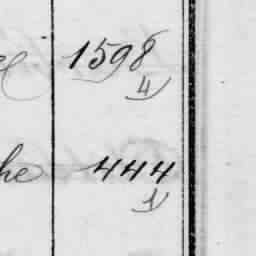 1598
4
he 444
1